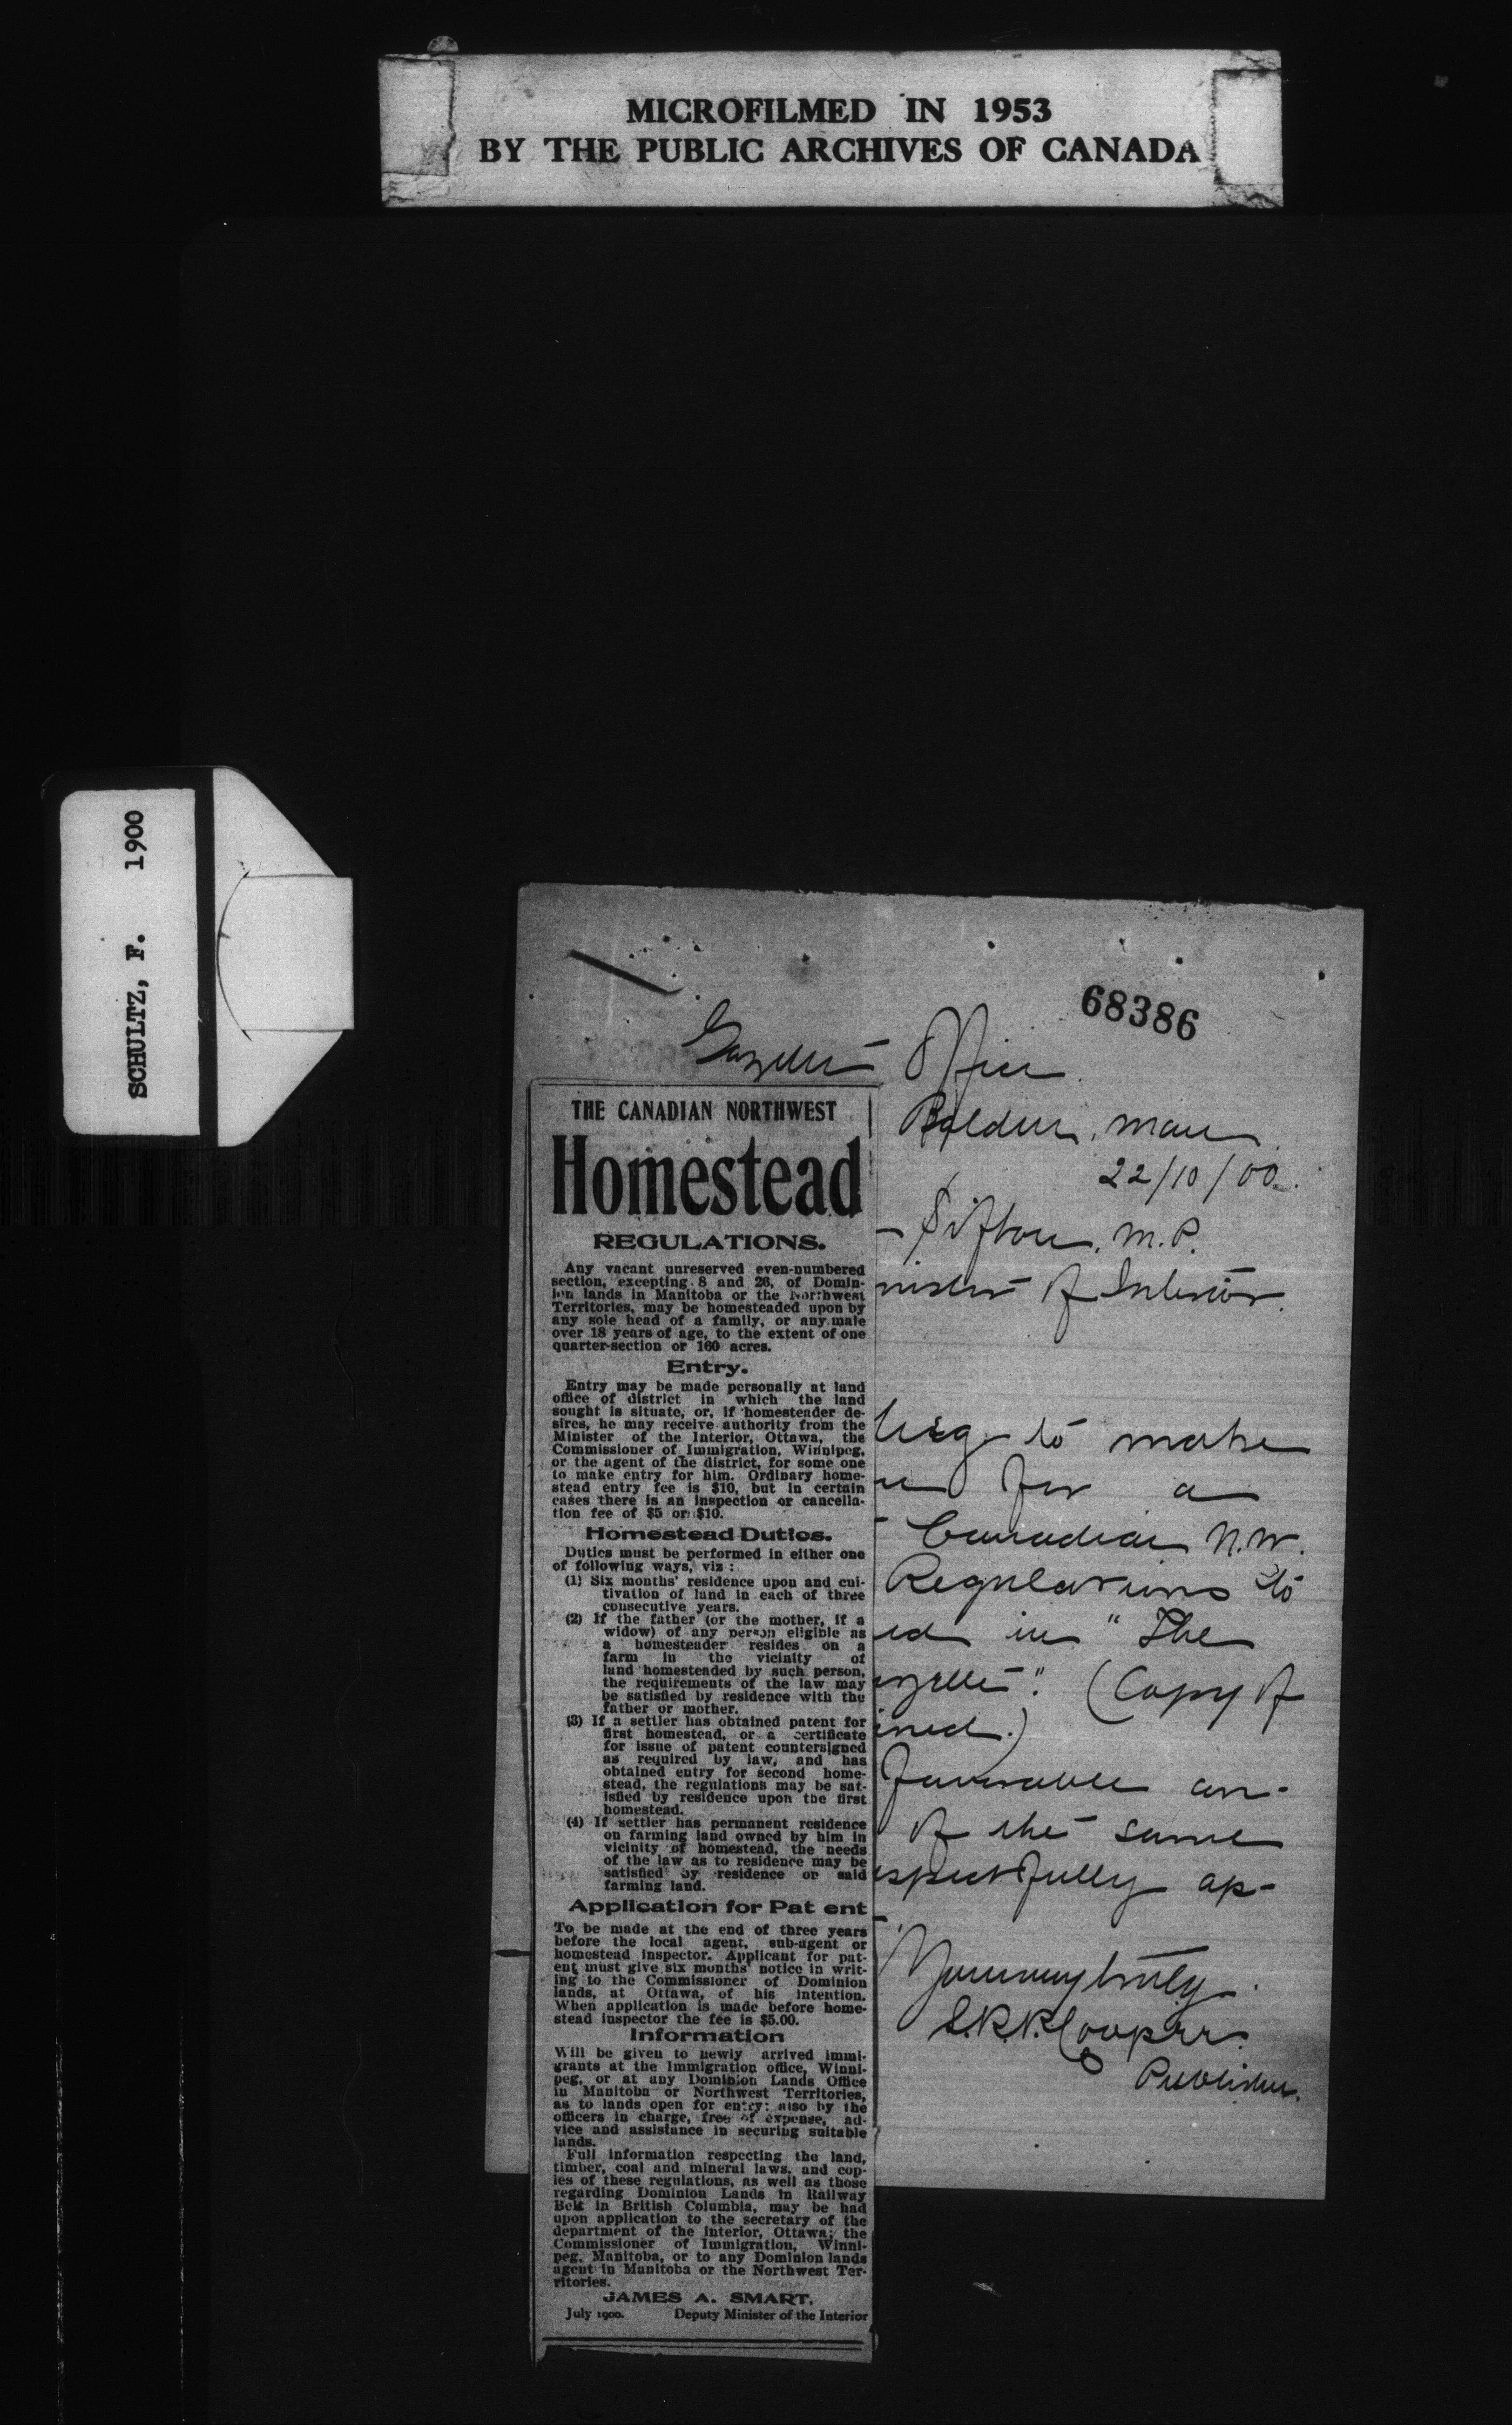 MICROFILMED IN 1953
BY THE PUBLIC ARCHIVES OF CANADA
SCHULTZ, F. 1900
68386
Gazette Office
Baldur, Man
22/10/00.
Sifton, M.P.
nister of Interior.
beg to make
for a
Canadian N.W.
Regulations to
ed in "The
zette". (Copy of
ined.)
Favorable an-
of the same
spectfully ap-
Yours very truly
Cooper
Publisher.
THE CANADIAN NORTHWEST
Homestead
REGULATIONS.
Any vacant unreserved even-numbered
section, excepting 8 and 26, of Domin-
ion lands in Manitoba or the Northwest
Territories, may be homesteaded upon by
any sole head of a family, or any male
over 18 years of age, to the extent of one
quarter-section or 160 acres.
Entry.
Entry may be made personally at land
office of district in which the land
sought is situate, or, if homesteader de-
sires, he may receive authority from the
Minister of the Interior, Ottawa, the
Commissioner of Immigration, Winnipeg,
or the agent of the district, for some one
to make entry for him. Ordinary home-
stead entry fee is $10, but in certain
cases there is an inspection or cancella-
tion fee of $5 or $10.
Homestead Duties.
Duties must be performed in either one
of following ways, viz :
(1) Six months' residence upon and cul-
tivation of land in each of three
consecutive years.
(2) If the father (or the mother, if a
widow) of any person eligible as
a homesteader resides on a
farm in the vicinity of
land homesteaded by such person,
the requirements of the law may
be satisfied by residence with the
father or mother.
(3) If a settler has obtained patent for
first homestead, or a certificate
for issue of patent countersigned
as required by law, and has
obtained entry for second home-
stead, the regulations may be sat-
isfied by residence upon the first
homestead.
(4) If settler has permanent residence
on farming land owned by him in
vicinity of homestead, the needs
of the law as to residence may be
satisfied by residence or said
farming land.
Application for Pat ent
To be made at the end of three years
before the local agent, sub-agent or
homestead inspector. Applicant for pat-
ent must give six months' notice in writ-
ing to the Commissioner of Dominion
lands, at Ottawa, of his intention.
When application is made before home-
stead inspector the fee is $5.00.
Information
Will be given to newly arrived immi-
grants at the Immigration office, Winni-
peg, or at any Dominion Lands Office
in Manitoba or Northwest Territories,
as to lands open for entry; also by the
officers in charge, free of expense, ad-
vice and assistance in securing suitable
lands.
Full information respecting the land,
timber, coal and mineral laws, and cop-
ies of these regulations, as well as those
regarding Dominion Lands in Railway
Belt in British Columbia, may be had
upon application to the secretary of the
department of the interior, Ottawa; the
Commissioner of Immigration, Winni-
peg, Manitoba, or to any Dominion lands
agent in Manitoba or the Northwest Ter-
ritories.
JAMES A. SMART,
July 1900. Deputy Minister of the Interior